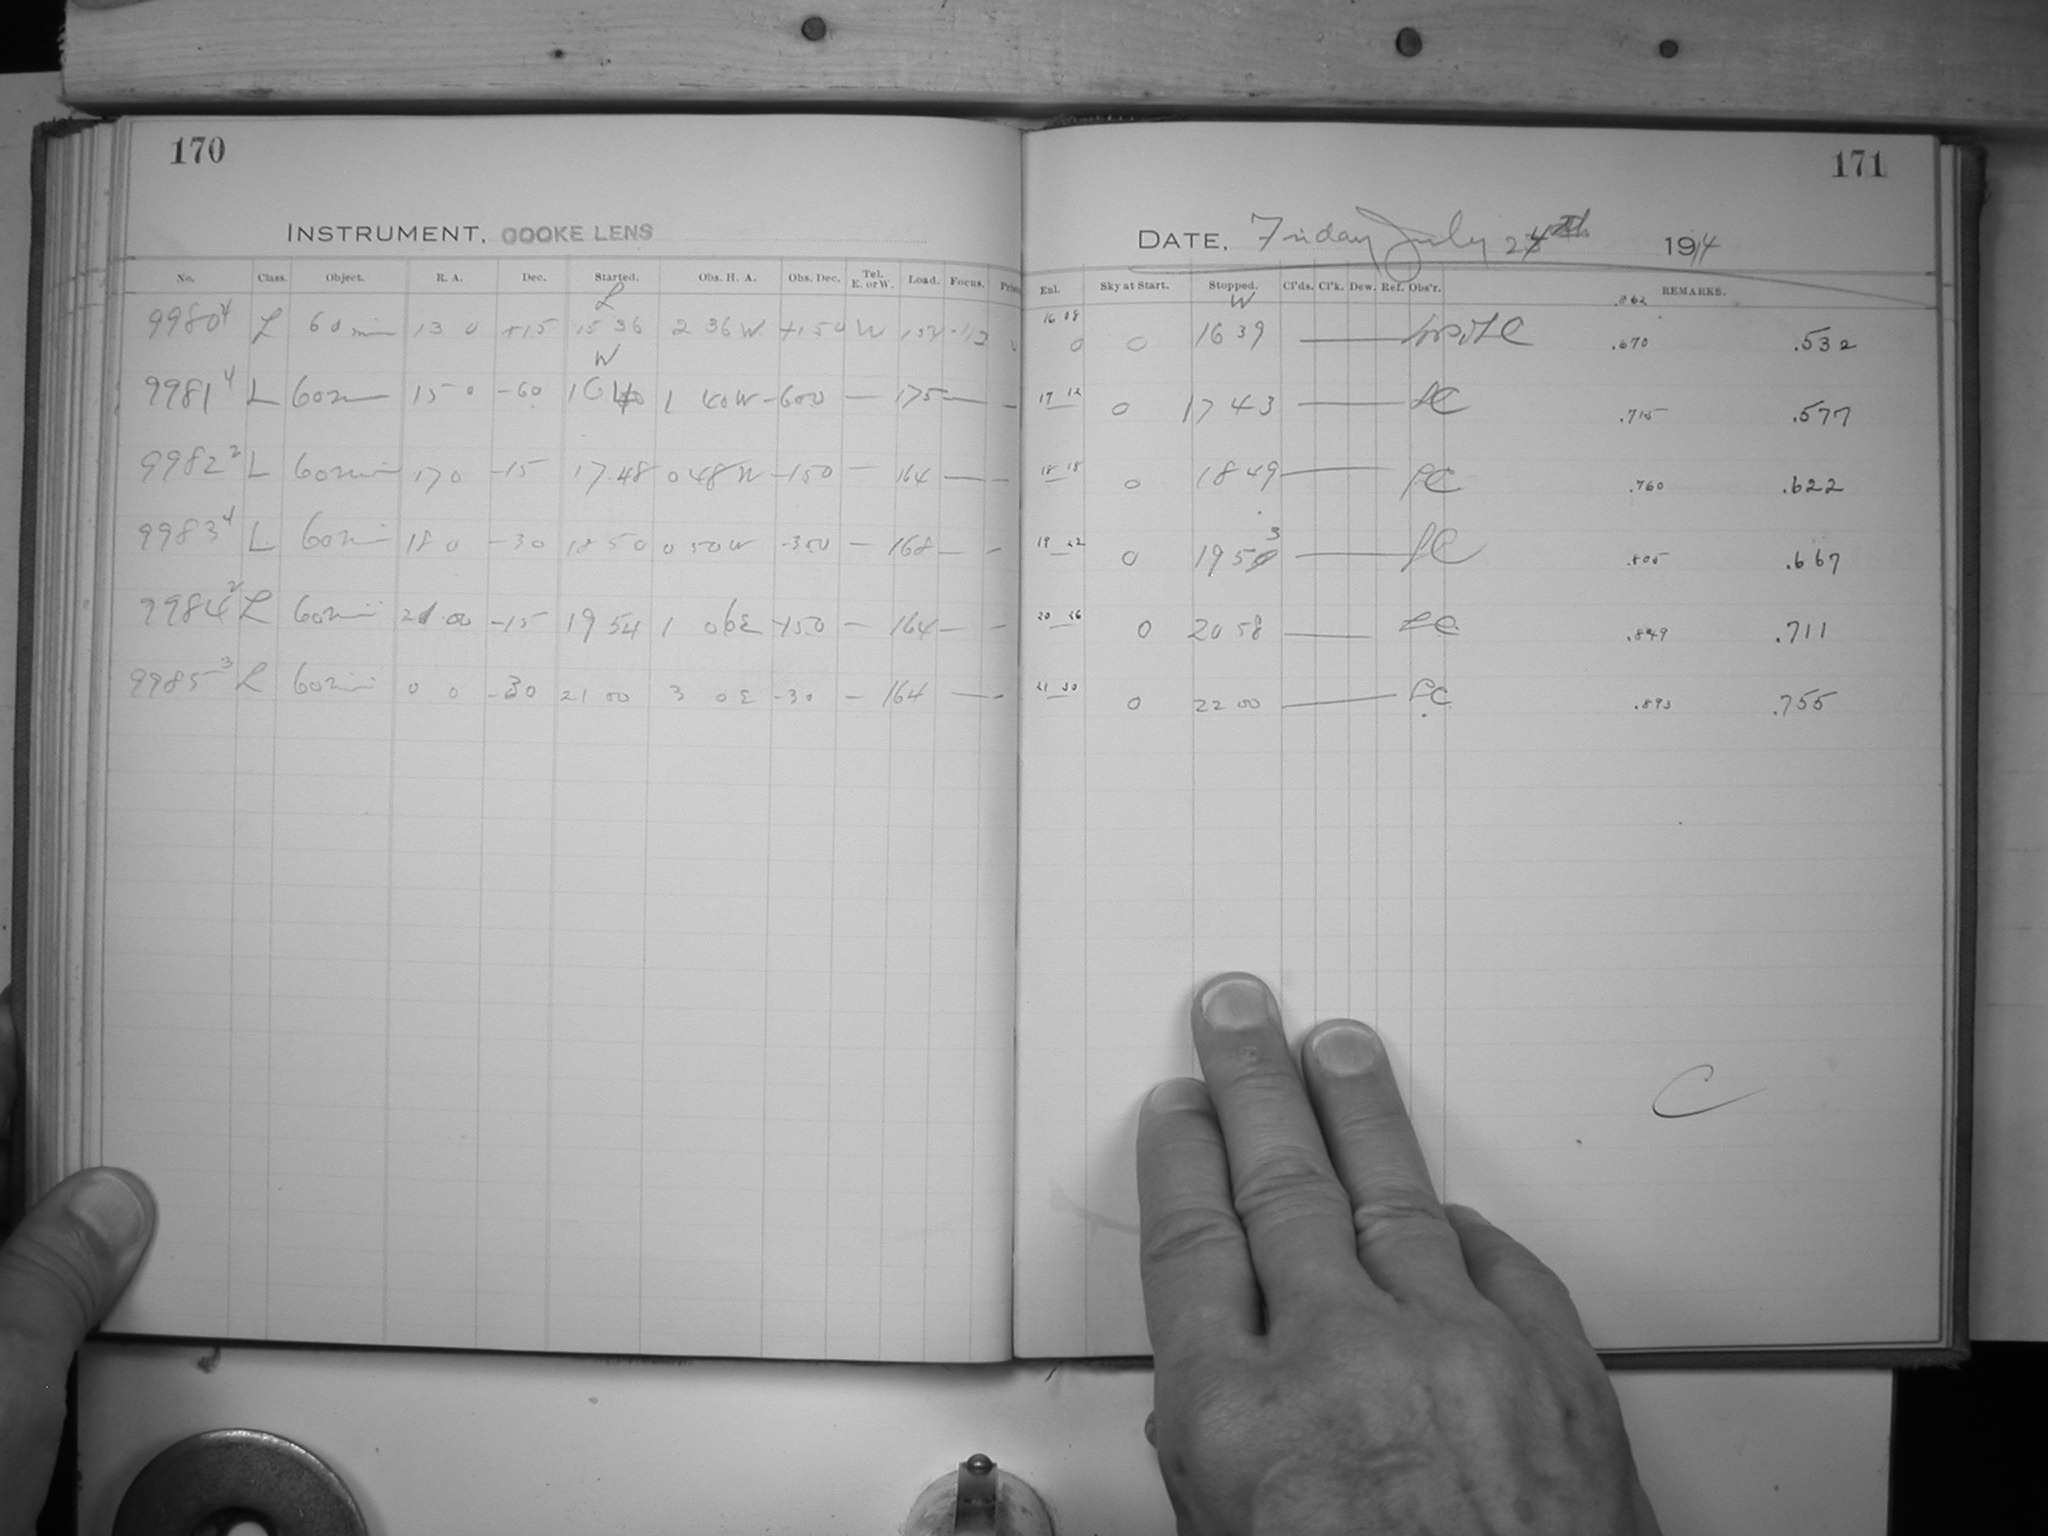 170
INSTRUMENT, COOKE LENS
No. Class. Object. R. A. Dec. Started. Obs. H. A. Obs. Dec. Tel. E. or W. Load. Focus.
L
9980⁴ L 60 min 13 0 +15 15 36 2 36 W +15 0 W 152
W
9981⁴ L 60min 15 0 -60 16 40 1 40 W -60 0 — 175 — —
9982² L 60min 17 0 -15 17 48 0 48 W -15 0 — 164 — —
9983⁴ L 60min 18 0 -30 18 50 0 50 W -30 0 — 168 — —
9984² L 60min 21 00 -15 19 54 1 06 E -15 0 — 164 — —
9985³ L 60min 0 0 -30 21 00 3 0 E -30 — 164 — —
171
DATE, Friday July 24th 1914
Enl. Sky at Start. Stopped. Cl'ds. Cl'k. Dew. Ref. Obs'r. REMARKS.
W .862
16 08
0 0 16 39 — .670 .532
17 12 0 17 43 — LC .715 .577
18 18 0 18 49 — LC .760 .622
19 22 0 19 53 — LC .805 .667
20 26 0 20 58 — LC .849 .711
21 30 0 22 00 — LC .893 .755
C